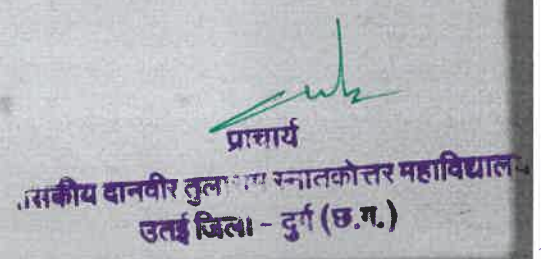 प्राचार्य
दानवीर स्नातकोत्तर महाविद्यालय
उतई जिला - दुर्ग (छ.ग.)